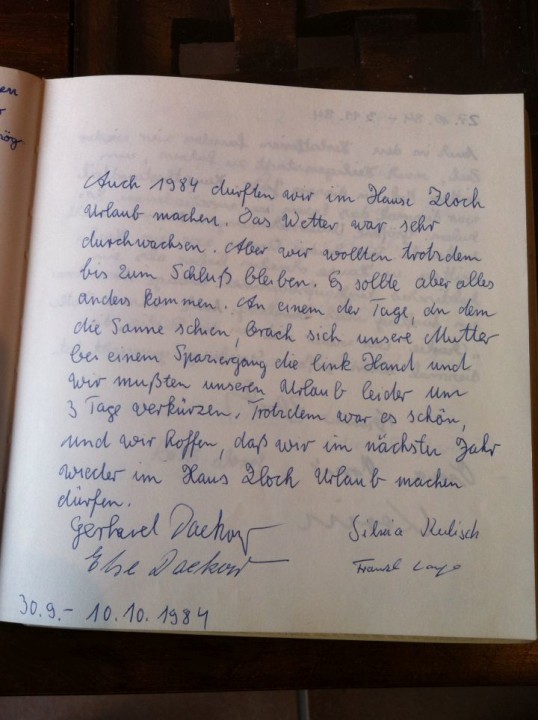 en
mög
Auch 1984 durften wir im Hause Zloch
Urlaub machen. Das Wetter war sehr
durchwachsen. Aber wir wollten trotzdem
bis zum Schluß bleiben. Es sollte aber alles
anders kommen. An einem der Tage, an dem
die Sonne schien, brach sich unsere Mutter
bei einem Spaziergang die link Hand und
wir mußten unseren Urlaub leider um
3 Tage verkürzen. Trotzdem war es schön,
und wir hoffen, daß wir im nächsten Jahr
wieder im Haus Zloch Urlaub machen
dürfen.
Gerhard Dackow Silvia Kulisch
Else Dackow
30.9.- 10.10.1984